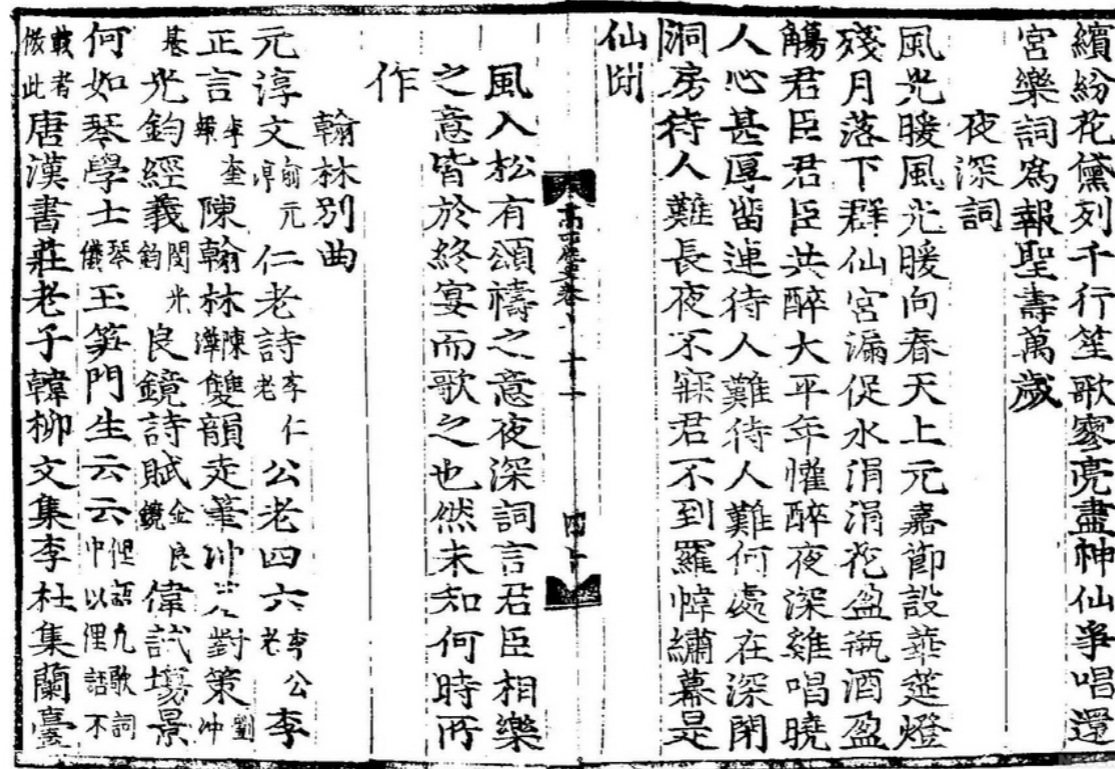 繽紛花黛列千行笙歌寥亮盡神仙爭唱還
宮樂詞爲報聖壽萬歲
夜深詞
風光暖風光暖向春天上元嘉節設華筵燈
殘月落下群仙宮漏促水涓涓花盈甁酒盈
觴君臣君臣共醉大平年懽醉夜深雞唱曉
人心甚厚留連待人難待人難何處在深閉
洞房待人難長夜不寐君不到羅幃繡幕是
仙間
風入松有頌禱之意夜深詞言君臣相樂
之意皆於終宴而歌之也然未知何時所
作
翰林別曲
元淳文兪元淳仁老詩李仁老公老四六李公老李
正言李奎報陳翰林陳澕雙韻走筆冲基對策劉冲基
光鈞經義閔光鈞良鏡詩賦金良鏡偉試場景
何如琴學士琴儀玉笋門生云云但語凡歌詞中以俚語不
載者倣此唐漢書莊老子韓柳文集李杜集蘭臺